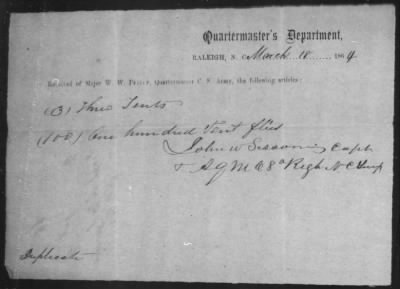 Quartermaster's Department,
RALEIGH, N. C. March 18 1864
Received of Major W. W. PEIRCE, Quartermaster C. S. Army, the following articles:
(3) Three Tents
(100) One hundred Tent flies
John W Sessoms Capt
& A Q M 68th Regt N C
Duplicate